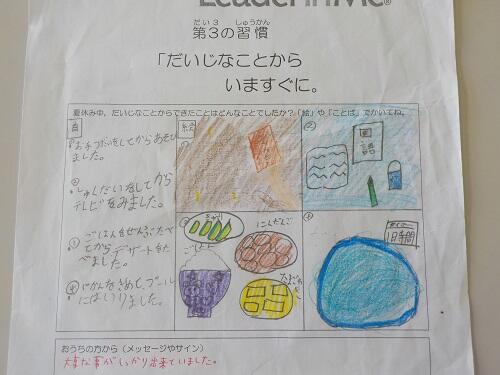 Leader in Me®
だい3 しゅうかん
第3の習慣
「だいじなことから
いますぐに。
夏休み中、だいじなことからできたことはどんなことでしたか？「絵」や「ことば」でかいてね。
絵
①おてつだいをしてからあそび
ました。
②しゅくだいをしてから
テレビをみました。
③ごはんをぜんぶたべ
てからデザートをた
べました。
④じかんをきめて、プール
にはいりました。
②
国語
ごはん
にくだんご
④
1時間
おうちの方から（メッセージやサイン）
大事な事がしっかり出来ていました。